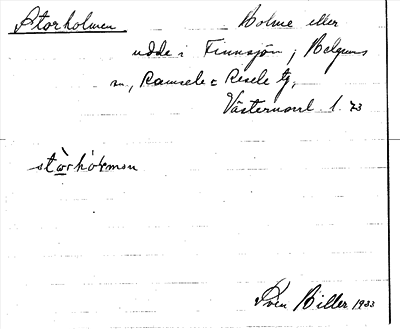 Storholmen Holme eller
udde i Finnsjön, Helgums
sn, Ramsele o Resele tg,
Västernorrl. l. 73
stòrhól̥mən
Sven Hiller 1933